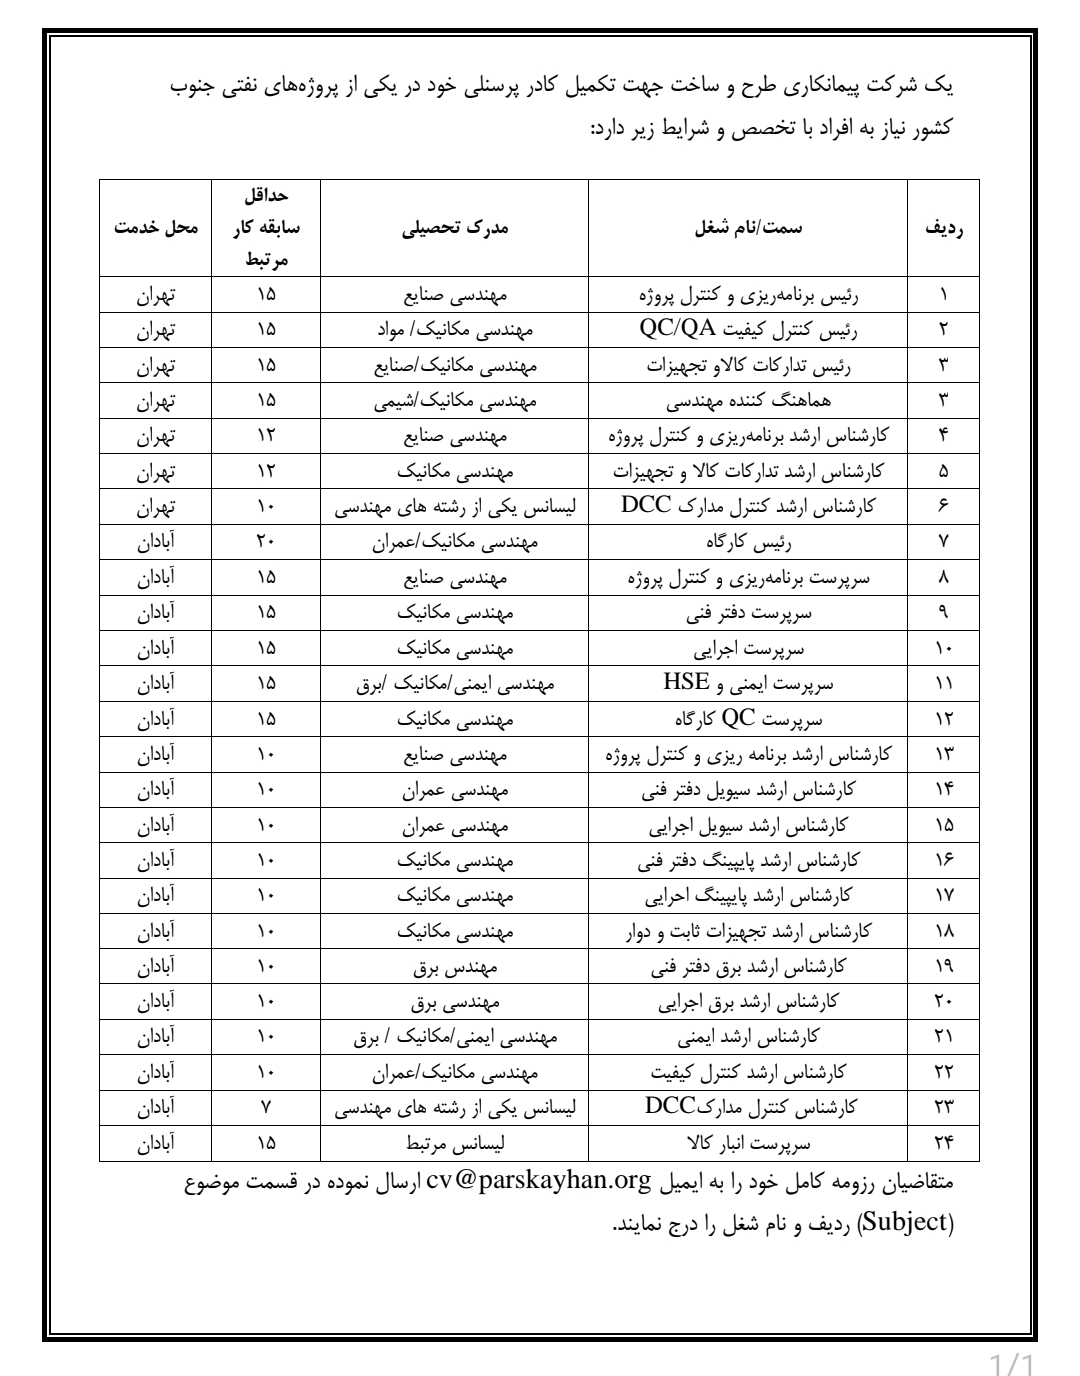 یک شرکت پیمانکاری طرح و ساخت جهت تکمیل کادر پرسنلی خود در یکی از پروژه‌های نفتی جنوب
کشور نیاز به افراد با تخصص و شرایط زیر دارد:
ردیف سمت/نام شغل مدرک تحصیلی حداقل سابقه کار مرتبط محل خدمت
۱ رئیس برنامه‌ریزی و کنترل پروژه مهندسی صنایع ۱۵ تهران
۲ رئیس کنترل کیفیت QC/QA مهندسی مکانیک/ مواد ۱۵ تهران
۳ رئیس تدارکات کالاو تجهیزات مهندسی مکانیک/صنایع ۱۵ تهران
۳ هماهنگ کننده مهندسی مهندسی مکانیک/شیمی ۱۵ تهران
۴ کارشناس ارشد برنامه‌ریزی و کنترل پروژه مهندسی صنایع ۱۲ تهران
۵ کارشناس ارشد تدارکات کالا و تجهیزات مهندسی مکانیک ۱۲ تهران
۶ کارشناس ارشد کنترل مدارک DCC لیسانس یکی از رشته های مهندسی ۱۰ تهران
۷ رئیس کارگاه مهندسی مکانیک/عمران ۲۰ آبادان
۸ سرپرست برنامه‌ریزی و کنترل پروژه مهندسی صنایع ۱۵ آبادان
۹ سرپرست دفتر فنی مهندسی مکانیک ۱۵ آبادان
۱۰ سرپرست اجرایی مهندسی مکانیک ۱۵ آبادان
۱۱ سرپرست ایمنی و HSE مهندسی ایمنی/مکانیک /برق ۱۵ آبادان
۱۲ سرپرست QC کارگاه مهندسی مکانیک ۱۵ آبادان
۱۳ کارشناس ارشد برنامه ریزی و کنترل پروژه مهندسی صنایع ۱۰ آبادان
۱۴ کارشناس ارشد سیویل دفتر فنی مهندسی عمران ۱۰ آبادان
۱۵ کارشناس ارشد سیویل اجرایی مهندسی عمران ۱۰ آبادان
۱۶ کارشناس ارشد پایپینگ دفتر فنی مهندسی مکانیک ۱۰ آبادان
۱۷ کارشناس ارشد پایپینگ احرایی مهندسی مکانیک ۱۰ آبادان
۱۸ کارشناس ارشد تجهیزات ثابت و دوار مهندسی مکانیک ۱۰ آبادان
۱۹ کارشناس ارشد برق دفتر فنی مهندس برق ۱۰ آبادان
۲۰ کارشناس ارشد برق اجرایی مهندسی برق ۱۰ آبادان
۲۱ کارشناس ارشد ایمنی مهندسی ایمنی/مکانیک / برق ۱۰ آبادان
۲۲ کارشناس ارشد کنترل کیفیت مهندسی مکانیک/عمران ۱۰ آبادان
۲۳ کارشناس کنترل مدارکDCC لیسانس یکی از رشته های مهندسی ۷ آبادان
۲۴ سرپرست انبار کالا لیسانس مرتبط ۱۵ آبادان
متقاضیان رزومه کامل خود را به ایمیل cv@parskayhan.org ارسال نموده در قسمت موضوع
(Subject) ردیف و نام شغل را درج نمایند.
1/1